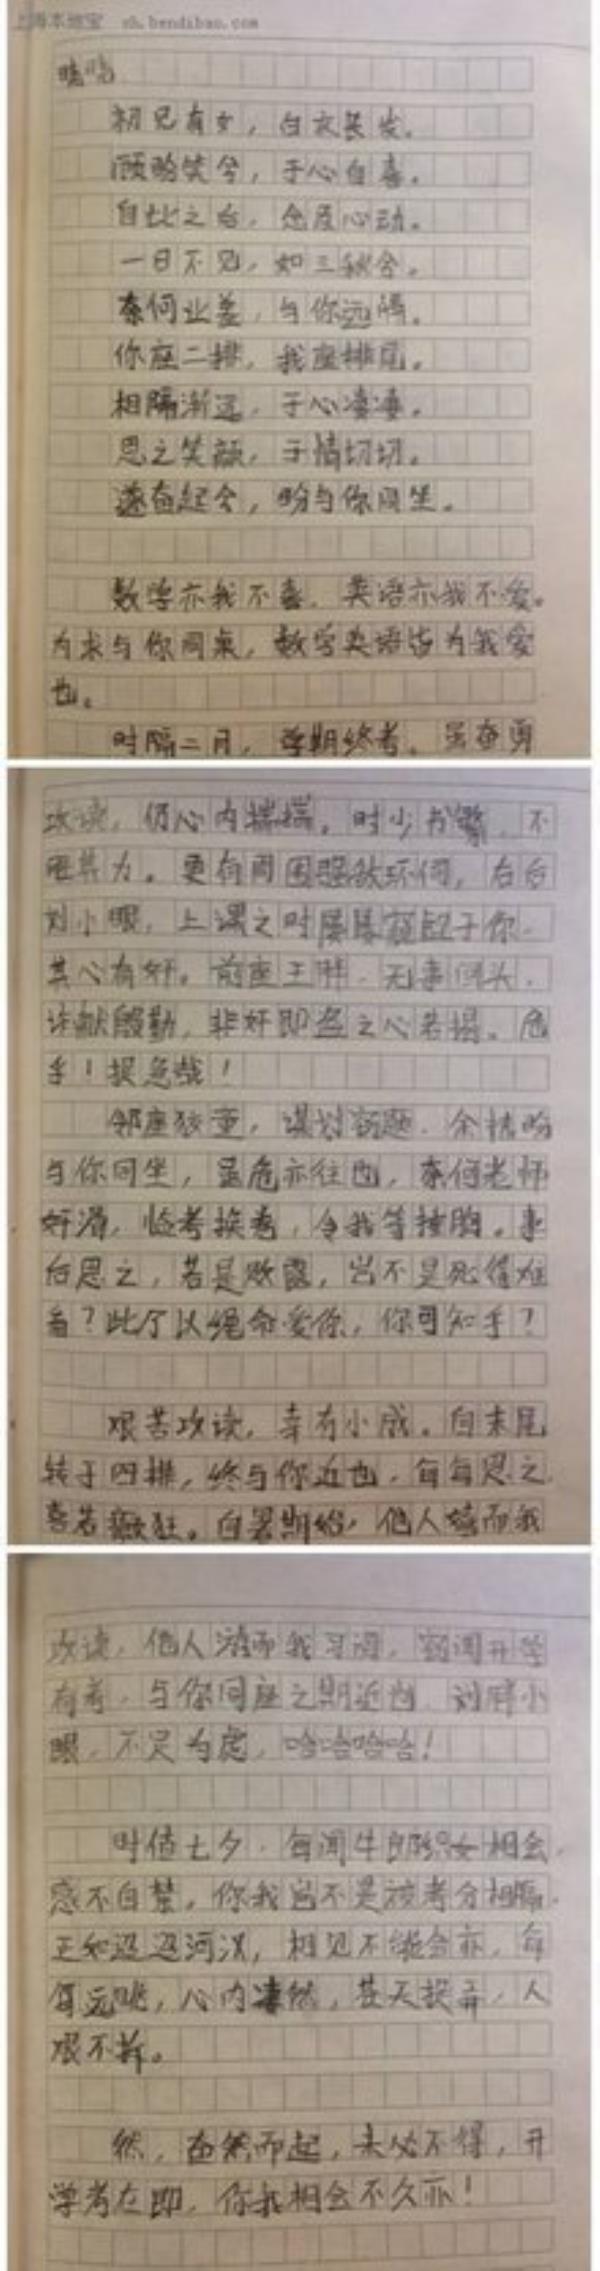 上海本地宝 sh.bendibao.com
晓晓
初见有女，白衣长发。
顾盼笑兮，于心自喜。
自此之后，念及心动。
一日不见，如三秋兮。
奈何业差，与你远隔。
你座二排，我座排尾。
相隔渐远，于心凄凄。
思之笑颜，于情切切。
遂奋起兮，盼与你同坐。
数学亦我不喜，英语亦我不爱。
为求与你同桌，数学英语皆为我爱
也。
时隔二月，学期终考。虽奋勇
攻读，仍心内揣揣，时少书繁，不
胜其力。更有周围强敌环伺，右后
刘小眼，上课之时屡屡窥视于你，
其心有奸。前座王胖，无事回头，
许献殷勤，非奸即盗之心若揭。危
乎！损急哉！
邻座狡童，谋划窃题，余情盼
与你同坐，虽危亦往也，奈何老师
奸滑，临考换卷，令我等捶胸。事
后思之，若是败露，岂不是死得难
看？此乃以绳命爱你，你可知乎？
艰苦攻读，幸有小成。自末尾
转于四排，终与你近也，每每思之
喜若癫狂。自暑期始，他人嬉而我
攻读，他人游而我习阅，窃闻开学
有考，与你同座之期近也，刘胖小
眼，不足为虑，哈哈哈哈！
时值七夕，每闻牛郎织女相会，
感不自禁，你我岂不是被考分相隔，
正如迢迢河汉，相见不能会亦，每
每远眺，心内凄然，苍天捉弄，人
艰不拆。
然，奋然而起，未必不得，开
学考在即，你我相会不久亦！